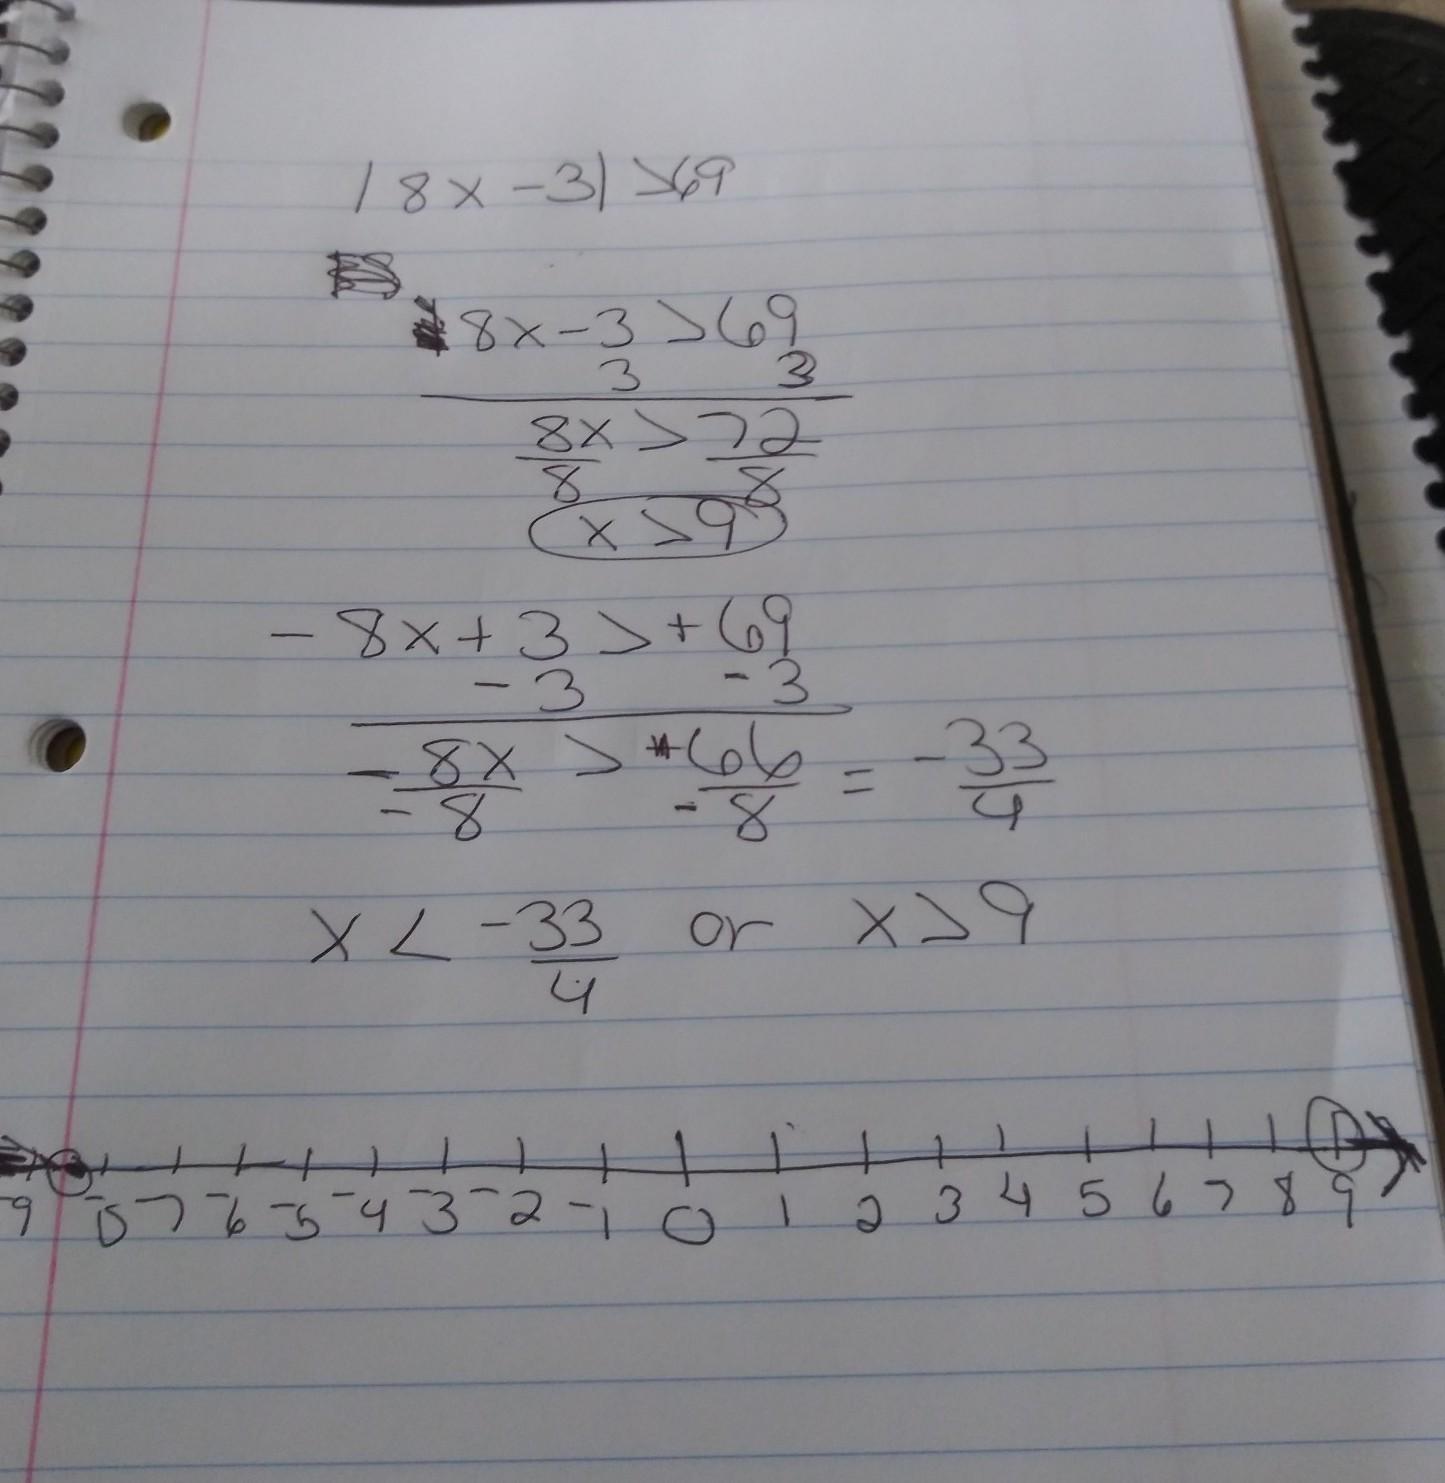 | 8x - 3| > 69
8x - 3 > 69
3 3
8x > 72
8 8
x > 9
- 8x + 3 > + 69
- 3 - 3
- 8x > 66 = - 33
- 8 - 8 4
x < - 33 or x > 9
4
-9 -8 -7 -6 -5 -4 -3 -2 -1 0 1 2 3 4 5 6 7 8 9